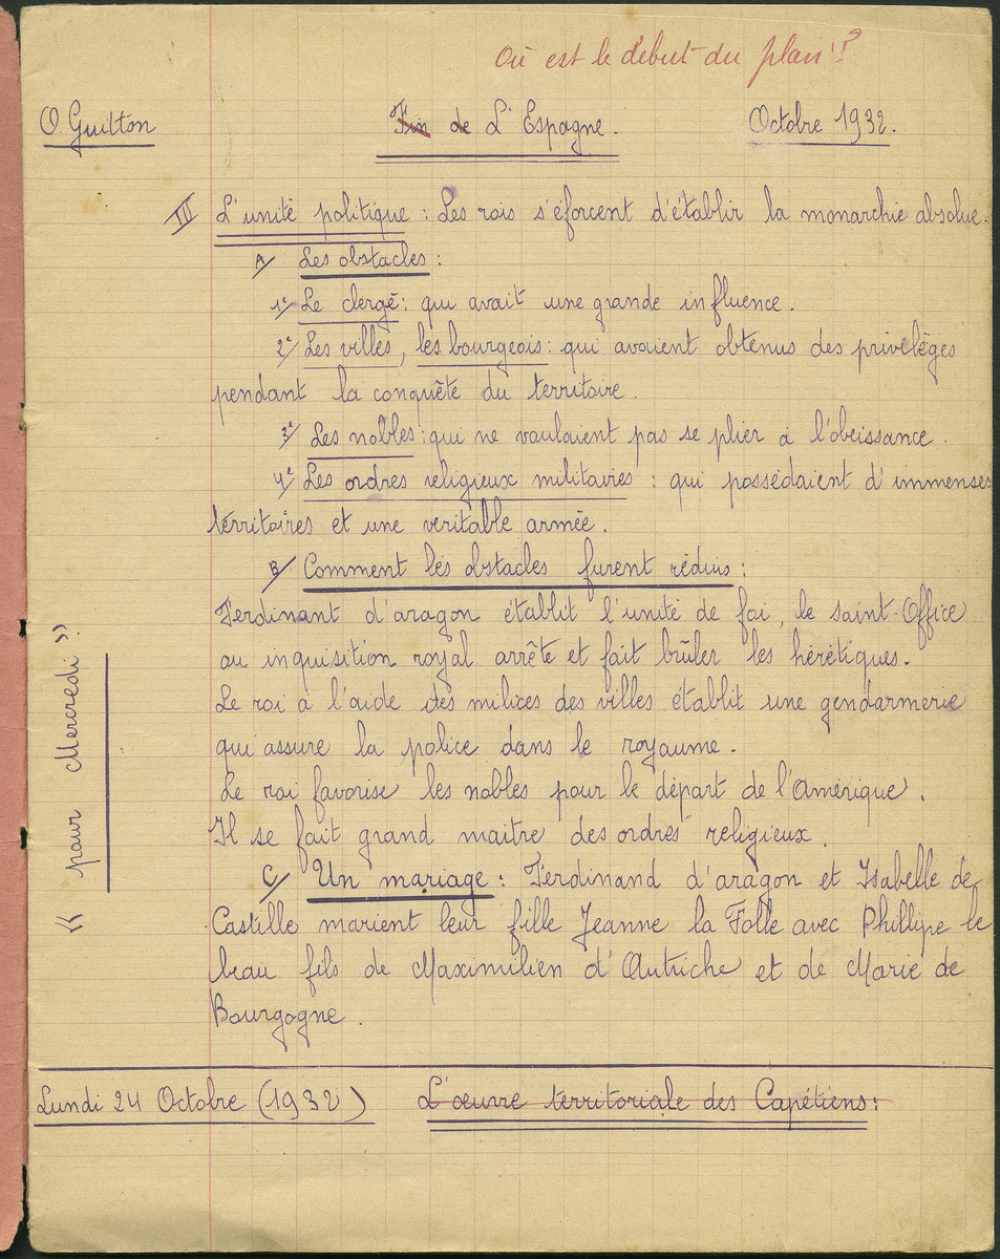 Où est le début du plan !?
O. Guitton
Fin de L'Espagne.
Octobre 1932.
III/ L'unité politique : Les rois s'éforcent d'établir la monarchie absolue.
A/ Les obstacles :
1°/ Le clergé : qui avait une grande influence.
2°/ Les villes, les bourgeois : qui avaient obtenus des privelèges
pendant la conquête du territoire.
3°/ Les nobles : qui ne voulaient pas se plier à l'obeissance.
4°/ Les ordres religieux militaires : qui possédaient d'immenses
térritoires et une veritable armée.
B/ Comment les obstacles furent réduis :
Ferdinant d'aragon établit l'unité de foi, le saint-Office
ou inquisition royal arrête et fait brûler les hérétiques.
Le roi à l'aide des milices des villes établit une gendarmerie
qui assure la police dans le royaume.
Le roi favorise les nobles pour le départ de l'Amérique.
Il se fait grand maitre des ordres religieux.
C/ Un mariage : Ferdinand d'aragon et Isabelle de
Castille marient leur fille Jeanne la Folle avec Phillipe le
beau fils de Maximilien d'Autriche et de Marie de
Bourgogne.
« pour Mercredi »
Lundi 24 Octobre (1932)
L'œuvre territoriale des Capétiens :